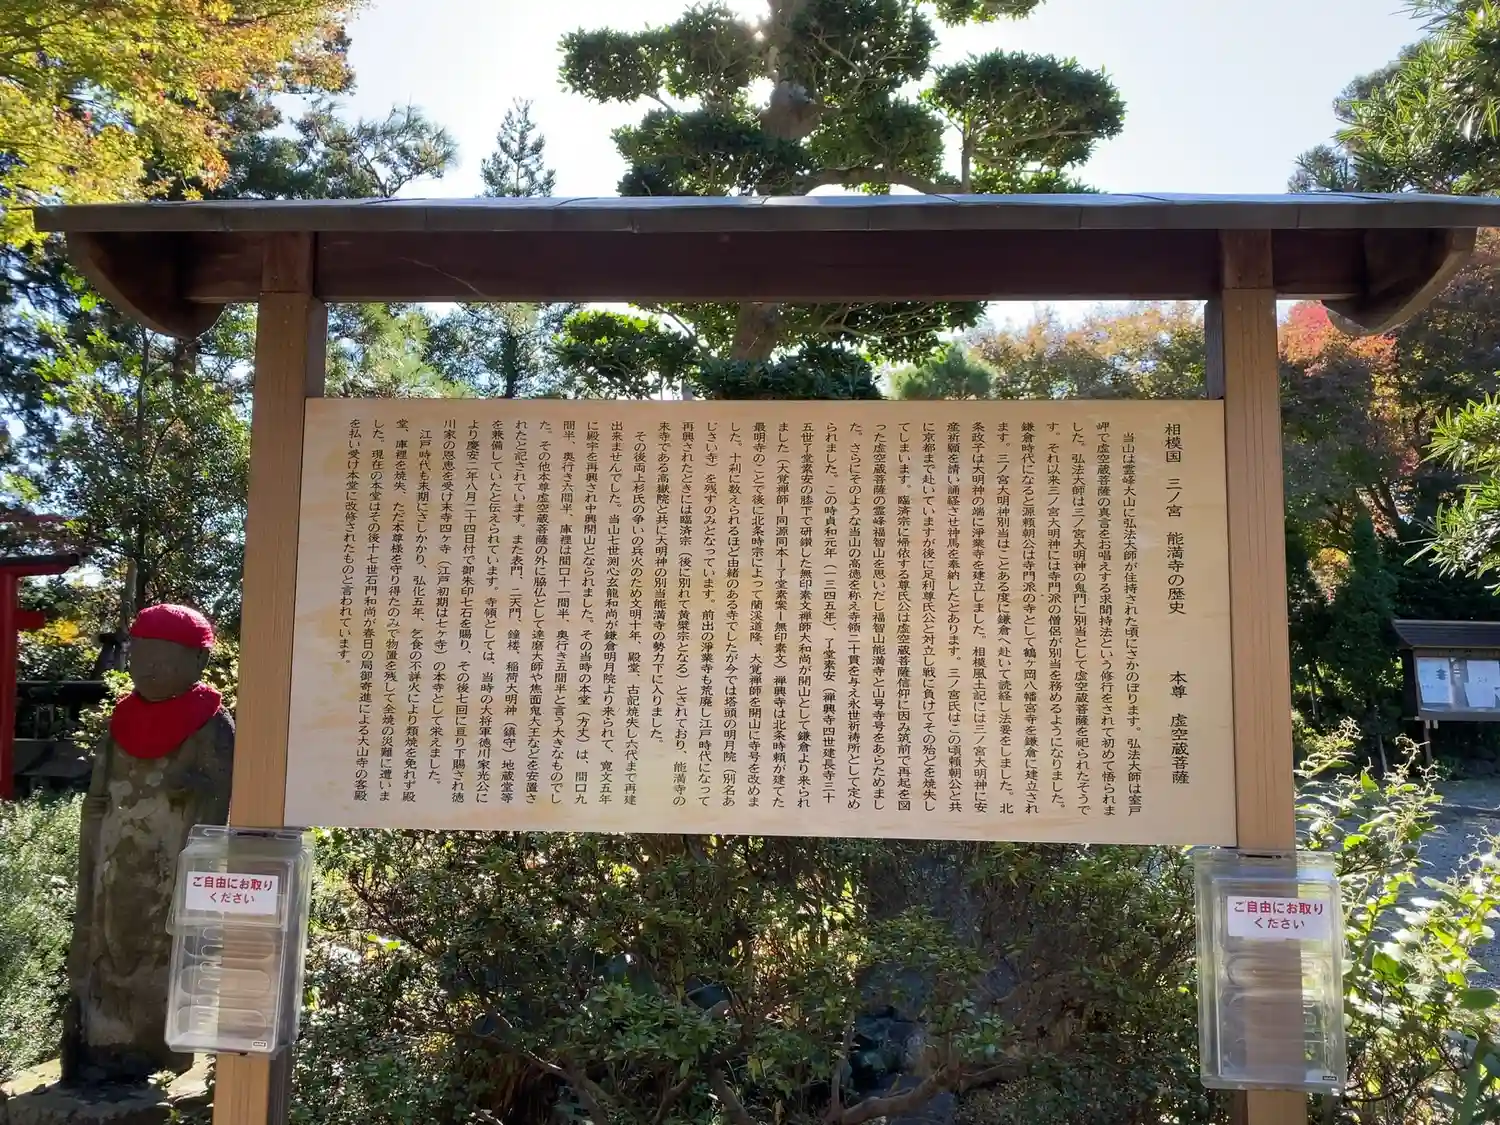 相模国 三ノ宮 能満寺の歴史 本尊 虚空蔵菩薩
当山は霊峰大山に弘法大師が住持された頃にさかのぼります。弘法大師は室戸
岬で虚空蔵菩薩の真言をお唱えする求聞持法という修行をされて初めて悟られま
した。弘法大師は三ノ宮大明神の鬼門に別当として虚空蔵菩薩を祀られたそうで
す。それ以来三ノ宮大明神には寺門派の僧侶が別当を務めるようになりました。
鎌倉時代になると源頼朝公は寺門派の寺として鶴ヶ岡八幡宮寺を鎌倉に建立され
ます。三ノ宮大明神別当はことある度に鎌倉へ赴いて読経し法要をしました。北
条政子は大明神の端に浄業寺を建立しました。相模風土記には三ノ宮大明神に安
産祈願を請い誦経させ神馬を奉納したとあります。三ノ宮氏はこの頃頼朝公と共
に京都まで赴いていますが後に足利尊氏公と対立し戦に負けてその殆どを焼失し
てしまいます。臨済宗に帰依する尊氏公は虚空蔵菩薩信仰に因み筑前で再起を図
った虚空蔵菩薩の霊峰福智山を思いだし福智山能満寺と山号寺号をあらためまし
た。さらにそのような当山の高徳を称え寺領二十貫を与え永世祈祷所として定め
られました。この時貞和元年（一三四五年）、了堂素安（禅興寺四世建長寺三十
五世了堂素安の膝下で研鑽した無印素文禅師大和尚が開山として鎌倉より来られ
ました（大覚禅師ー同源同本ー了堂素案ー無印素文）禅興寺は北条時頼が建てた
最明寺のことで後に北条時宗によって蘭渓道隆、大覚禅師を開山に寺号を改めま
した。十刹に数えられるほど由緒のある寺でしたが今では塔頭の明月院（別名あ
じさい寺）を残すのみとなっています。前出の浄業寺も荒廃し江戸時代になって
再興されたときには臨済宗（後に別れて黄檗宗となる）とされており、能満寺の
末寺である高嶽院と共に大明神の別当能満寺の勢力下に入りました。
その後両上杉氏の争いの兵火のため文明十年、殿堂、古記焼失し六代まで再建
出来ませんでした。当山七世渕心玄龍和尚が鎌倉明月院より来られて、寛文五年
に殿宇を再興され中興開山となられました。その当時の本堂（方丈）は、間口九
間半、奥行き六間半、庫裡は間口十一間半、奥行き五間半と言う大きなものでし
た。その他本尊虚空蔵菩薩の外に脇仏として達磨大師や焦面鬼大王などを安置さ
れたと記されています。また表門、二天門、鐘楼、稲荷大明神（鎮守）地蔵堂等
を兼備していたと伝えられています。寺領としては、当時の大将軍徳川家光公に
より慶安二年八月二十四日付で御朱印七石を賜り、その後十回に亘り下賜され徳
川家の恩恵を受け末寺四ヶ寺（江戸初期は七ヶ寺）の本寺として栄えました。
江戸時代も末期にさしかかり、弘化五年、乞食の不詳火により類焼を免れず殿
堂、庫裡を焼失、ただ本尊様を守り得たのみで物置を残して全焼の災難に遭いま
した。現在の本堂はその後十七世石門和尚が春日の局御寄進による大山寺の客殿
を払い受け本堂に改修されたものと言われています。
ご自由にお取り
ください
ご自由にお取り
ください